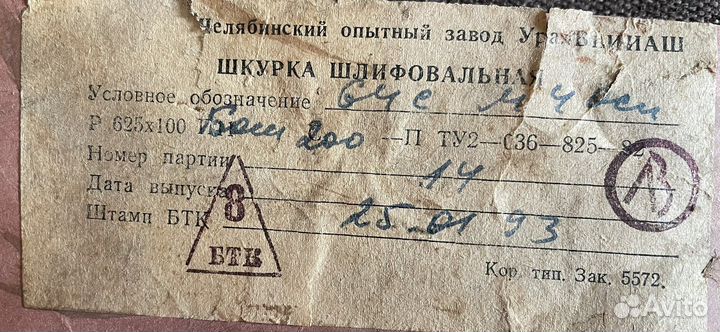 Челябинский опытный завод УралВНИИАШ
ШКУРКА ШЛИФОВАЛЬНАЯ
Условное обозначение 64С
Р 625х100 200 —П ТУ2—036—825—82
Номер партии 14
Дата выпуска 25.01 93
Штамп БТК 8
БТК
Кор. тип. Зак. 5572.
Avito